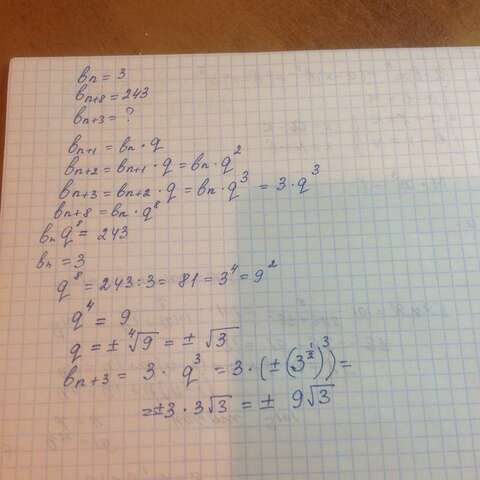 bn = 3
bn+8 = 243
bn+3 = ?
bn+1 = bn · q
bn+2 = bn+1 · q = bn · q²
bn+3 = bn+2 · q = bn · q³ = 3 · q³
bn+8 = bn · q⁸
bn q⁸ = 243
bn = 3
q⁸ = 243 : 3 = 81 = 3⁴ = 9²
q⁴ = 9
q = ± ⁴√9 = ± √3
bn+3 = 3 · q³ = 3 · (± (3^½)³) =
= ±3 · 3√3 = ± 9√3